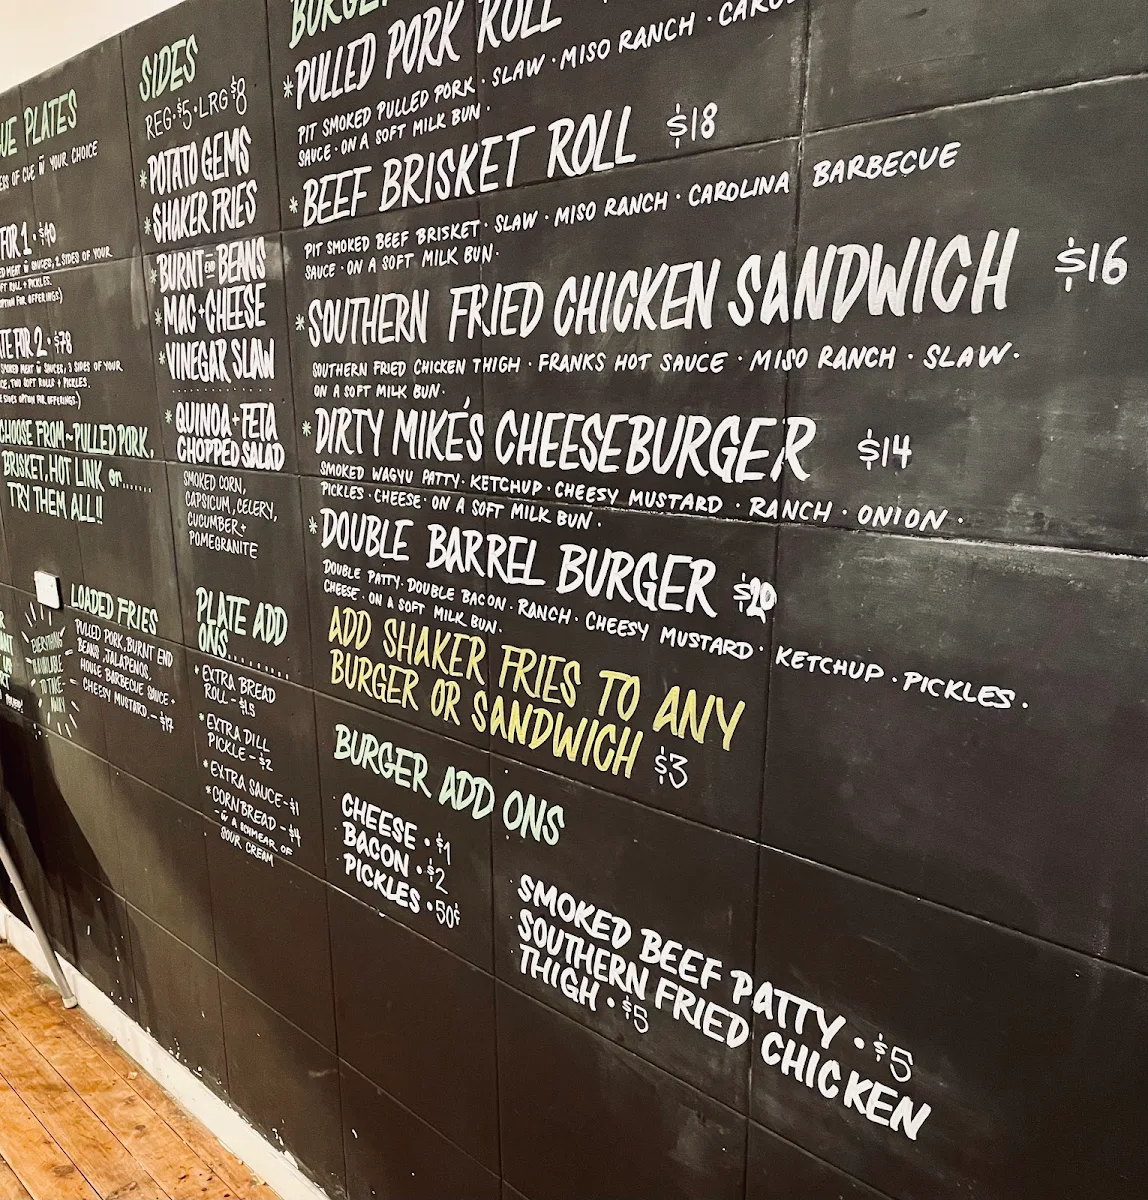 UE PLATES
ESS OF CUE W YOUR CHOICE
FOR 1 · $40
ED MEAT W SAUCES, 2 SIDES OF YOUR
FT ROLL + PICKLES.
OPTION FOR OFFERINGS.)
TE FOR 2 · $78
SMOKED MEAT W SAUCES, 3 SIDES OF YOUR
CE, TWO SOFT ROLLS + PICKLES.
SIDES OPTION FOR OFFERINGS.)
CHOOSE FROM ~ PULLED PORK,
BRISKET, HOT LINK or.......
TRY THEM ALL!!
EVERYTHING
AVAILABLE
TO TAKE-
AWAY!
LOADED FRIES
PULLED PORK, BURNT END
BEANS, JALAPENOS,
HOUSE BARBECUE SAUCE +
CHEESY MUSTARD. - $17
SIDES
REG · $5 · LRG $8
* POTATO GEMS
* SHAKER FRIES
* BURNT END BEANS
* MAC + CHEESE
* VINEGAR SLAW
* QUINOA + FETA
CHOPPED SALAD
SMOKED CORN,
CAPSICUM, CELERY,
CUCUMBER +
POMEGRANITE
PLATE ADD
ONS........
* EXTRA BREAD
ROLL - $1.5
* EXTRA DILL
PICKLE - $2
* EXTRA SAUCE - $1
* CORNBREAD - $4
- W A SCHMEAR OF
SOUR CREAM
BURGE
* PULLED PORK ROLL
PIT SMOKED PULLED PORK · SLAW · MISO RANCH · CARO
SAUCE · ON A SOFT MILK BUN ·
* BEEF BRISKET ROLL $18
PIT SMOKED BEEF BRISKET · SLAW · MISO RANCH · CAROLINA BARBECUE
SAUCE · ON A SOFT MILK BUN ·
* SOUTHERN FRIED CHICKEN SANDWICH $16
SOUTHERN FRIED CHICKEN THIGH · FRANKS HOT SAUCE · MISO RANCH · SLAW ·
ON A SOFT MILK BUN ·
* DIRTY MIKE'S CHEESEBURGER $14
SMOKED WAGYU PATTY · KETCHUP · CHEESY MUSTARD · RANCH · ONION ·
PICKLES · CHEESE · ON A SOFT MILK BUN ·
* DOUBLE BARREL BURGER $20
DOUBLE PATTY · DOUBLE BACON · RANCH · CHEESY MUSTARD · KETCHUP · PICKLES ·
CHEESE · ON A SOFT MILK BUN ·
ADD SHAKER FRIES TO ANY
BURGER OR SANDWICH $3
BURGER ADD ONS
CHEESE · $1
BACON · $2
PICKLES · 50¢
SMOKED BEEF PATTY · $5
SOUTHERN FRIED CHICKEN
THIGH · $5